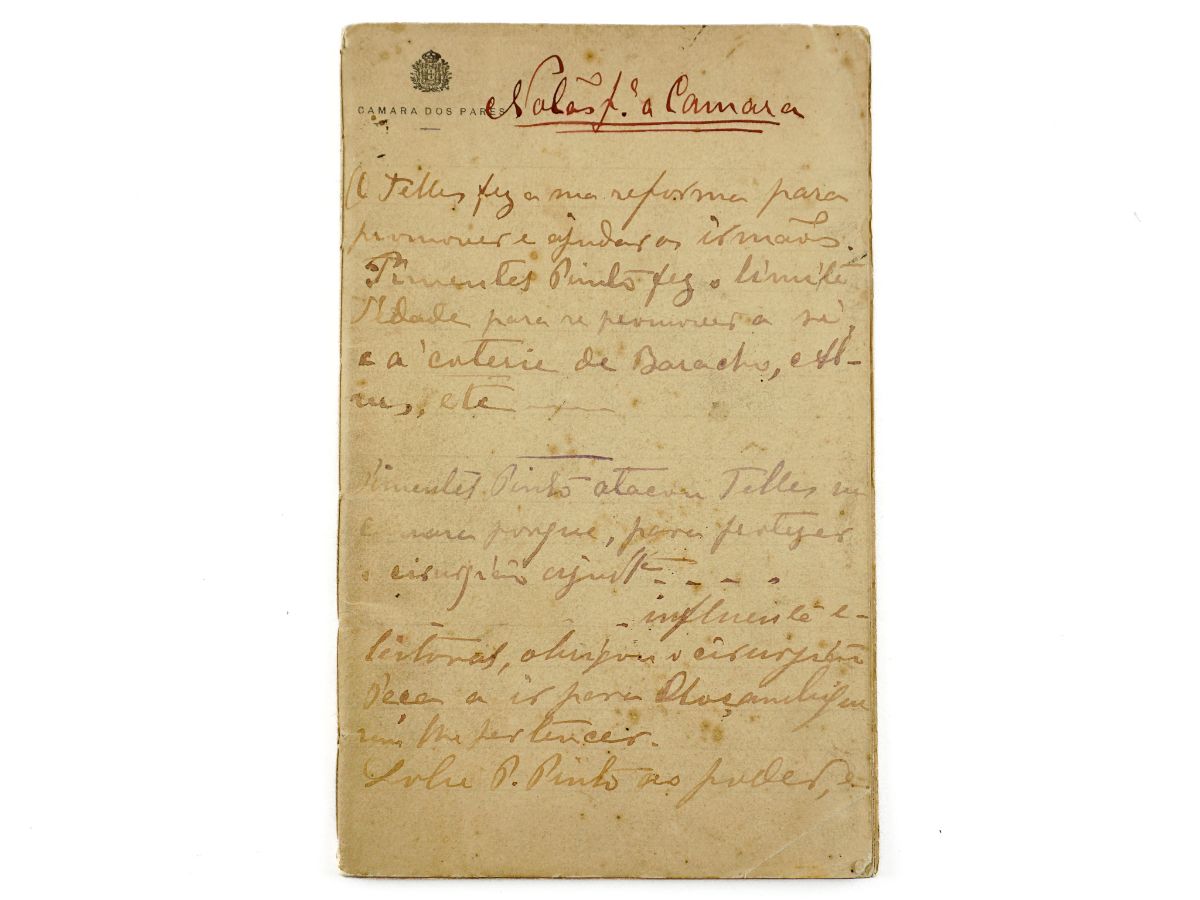 CAMARA DOS PARES
Notas p.ª a Camara
O Telles fez a sua reforma para
promover e ajudar os irmãos.
Pimentel Pinto fez o limite
d'idade para se promover a si,
e á coterie de Baracho,
etc
Pimentel Pinto atacou Telles na
camara porque, para proteger
o cirurgião ajud.te - - - -
influente e-
leitoral, obrigou o cirurgião
a ir para Moçambique
sem lhe pertencer.
Sobe P. Pinto ao poder, e